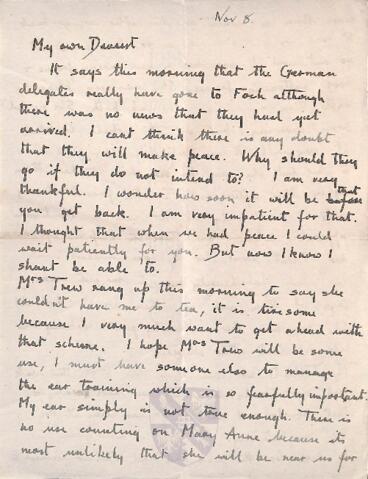 Nov 8.
My own Dearest
It says this morning that the German
delegates really have gone to Foch although
there was no news that they had yet
arrived. I cant think there is any doubt
that they will make peace. Why should they
go if they do not intend to? I am very
thankful. I wonder how soon it will be that
you get back. I am very impatient for that.
I thought that when we had peace I could
wait patiently for you. But now I know I
shant be able to.
Mrs Trew rang up this morning to say she
couldn't have me to tea, it is tiresome
because I very much want to get ahead with
that scheme. I hope Mrs Trew will be some
use, I must have someone else to manage
the ear training which is so fearfully important.
My ear simply is not true enough. There is
no use counting on Mary Anne because its
most unlikely that she will be near us for